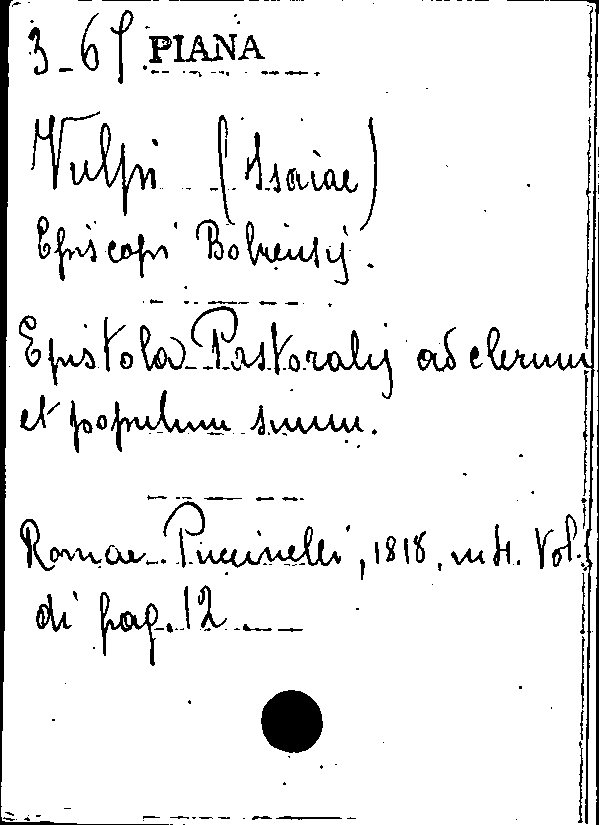 PIANA
Vulpi (Isaiae)
Episcopi Bobiensis.
Epistola Pastoralis ad clerum
et populum suum.
Romae Puccinelli, 1818, in 4. Vol.
di pag. 12.